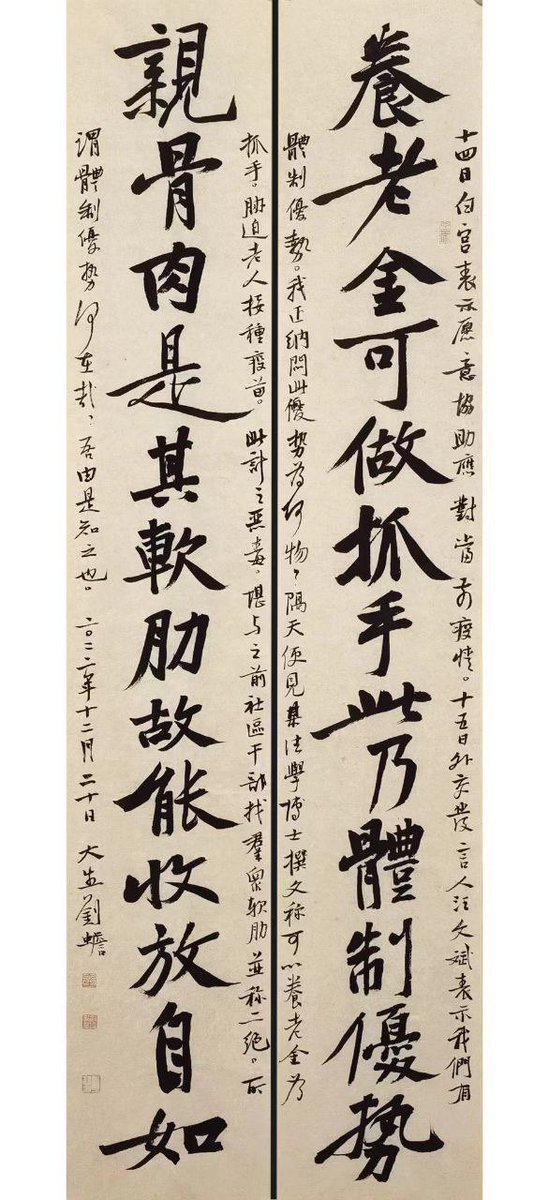 十四日白宫表示愿意協助應對當前疫情。十五日外交發言人汪文斌表示我們有
養老金可做抓手此乃體制優勢
體制優勢。我正纳悶此優势為何物？隔天便見某法學博士撰文称可以養老金为
抓手，胁迫老人接種疫苗。此計之惡毒，堪与之前社區干部找羣眾软肋並称二绝，所
親骨肉是其軟肋故能收放自如
謂體制優势何在哉？吾由是知之也。二〇二二年十二月二十日 大生劉蟾